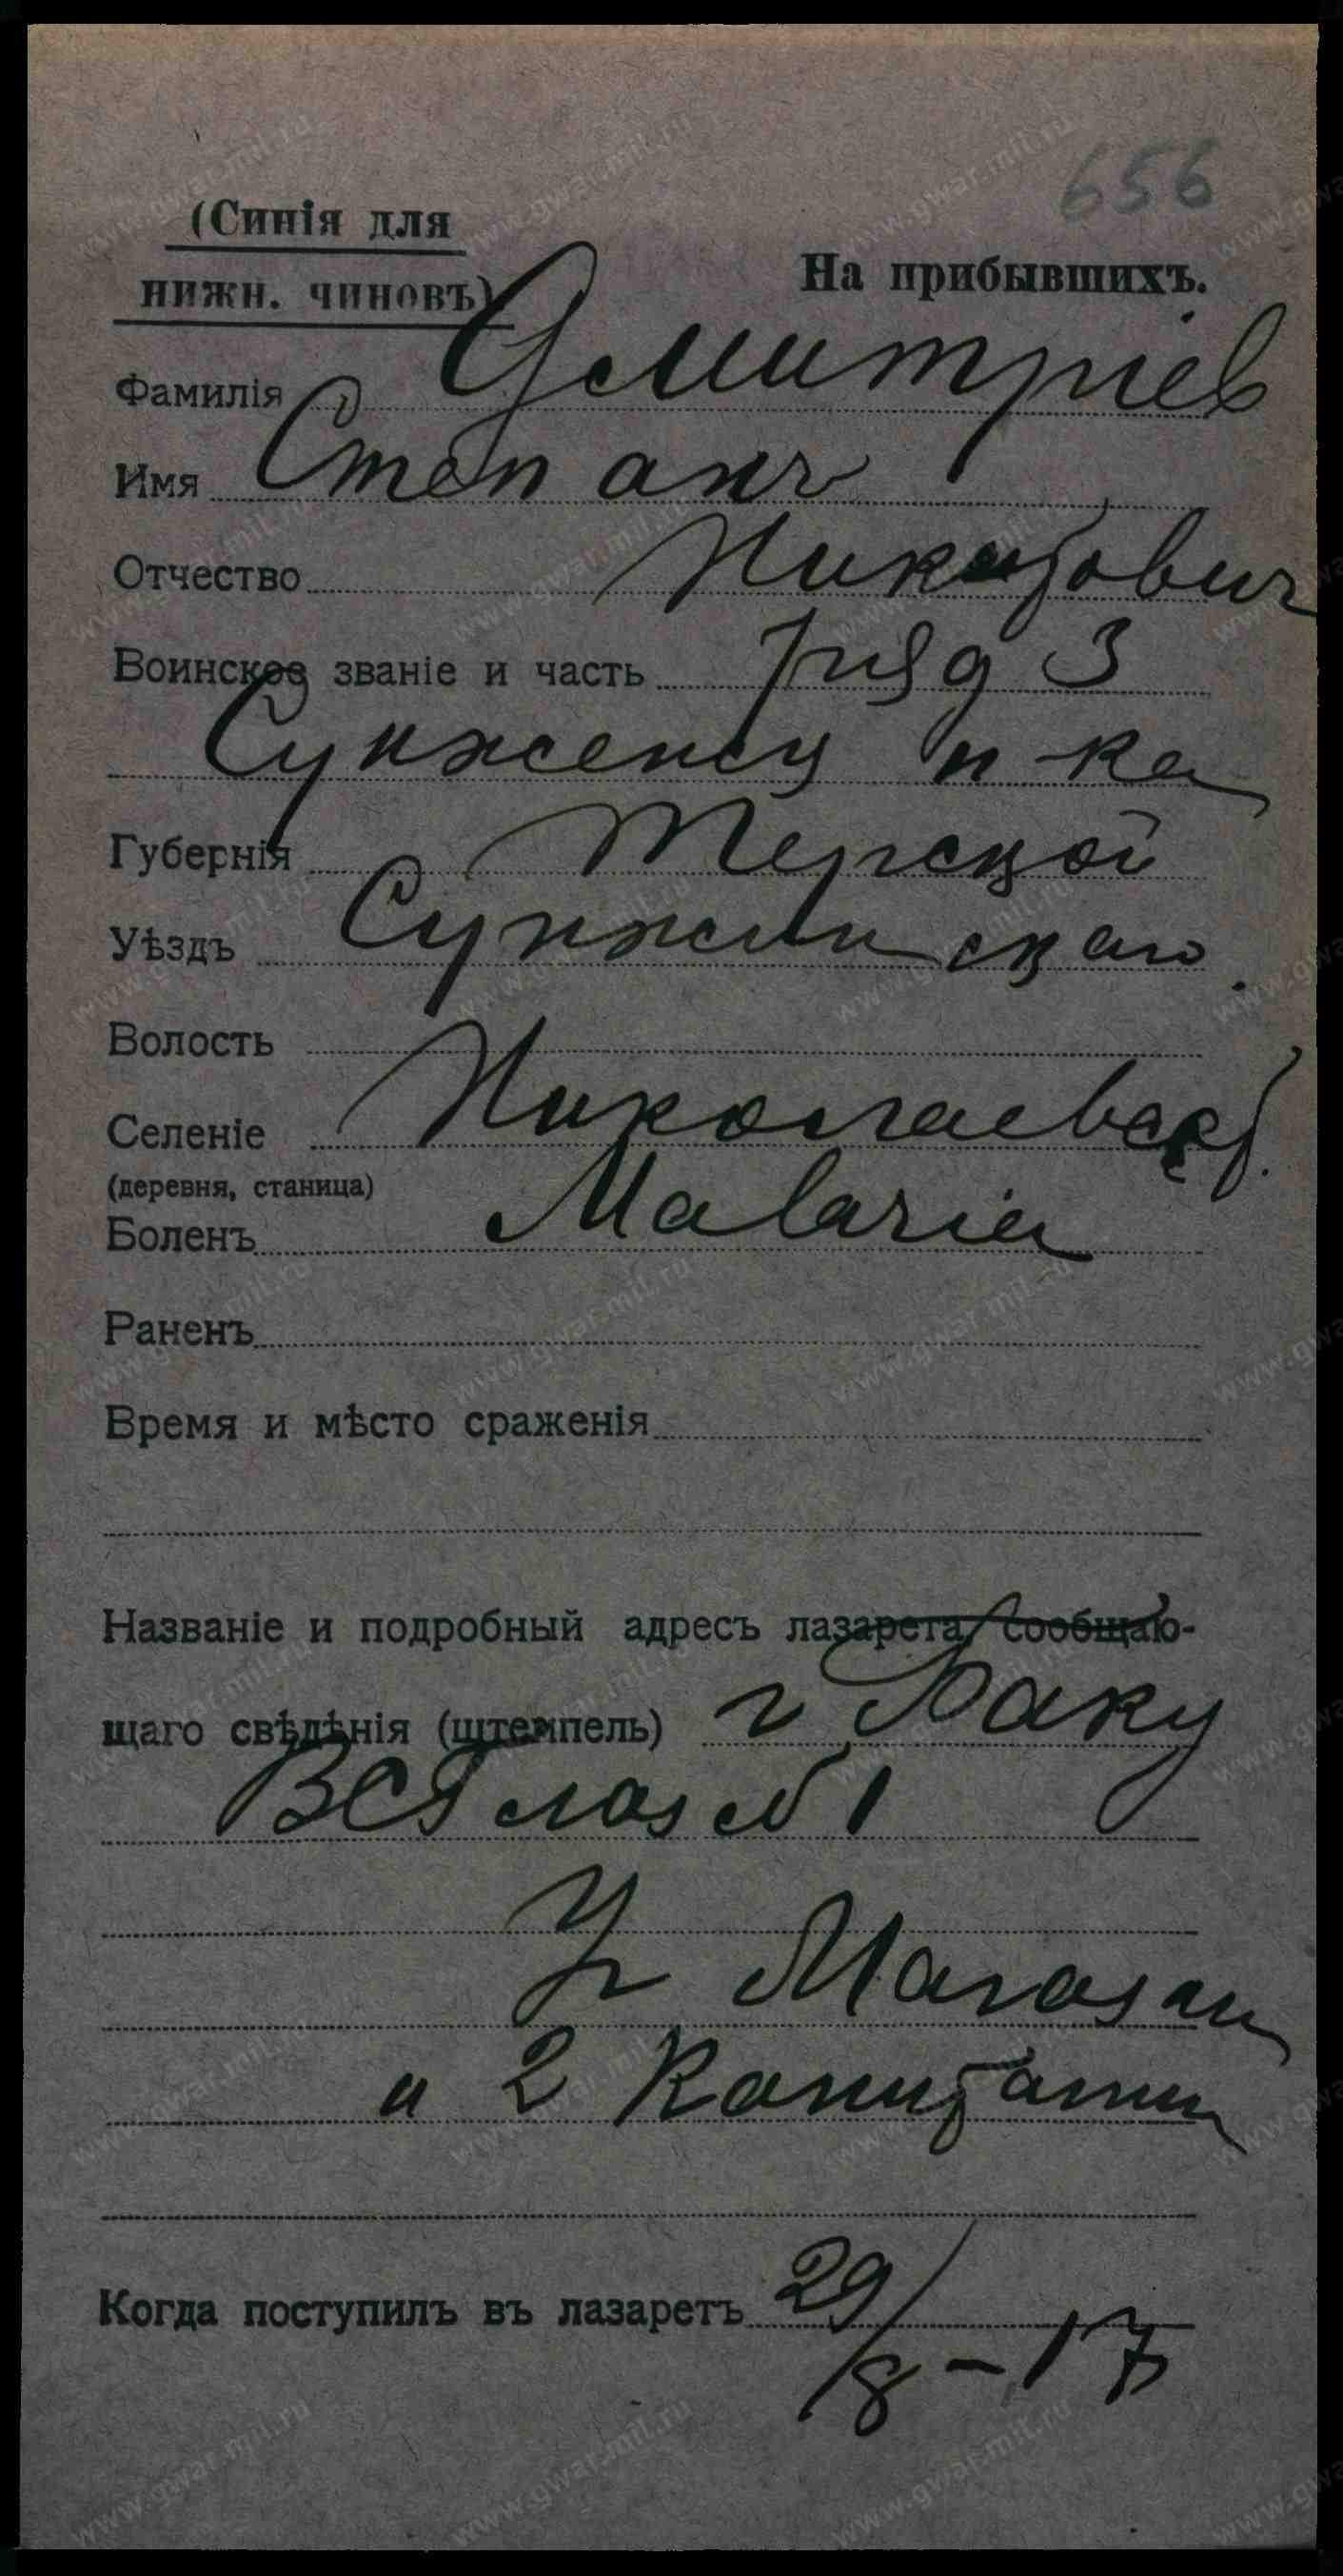 656
(Синія для
нижн. чиновъ)
На прибывшихъ.
Фамилія Дмитріев
Имя Степанъ
Отчество Никитович
Воинское званіе и часть ряд 3
Сунженск п-ка
Губернія Терской
Уѣздъ Сунженскаго
Волость
Селеніе Николаевск.
(деревня, станица)
Боленъ Malaria
Раненъ
Время и мѣсто сраженія
Названіе и подробный адресъ лазарета, сообщаю-
щаго свѣдѣнія (штемпель) г Баку
ВСГ лаз № 1
Уг Магазан
и 2 Канитапин
Когда поступилъ въ лазаретъ 29/8-17